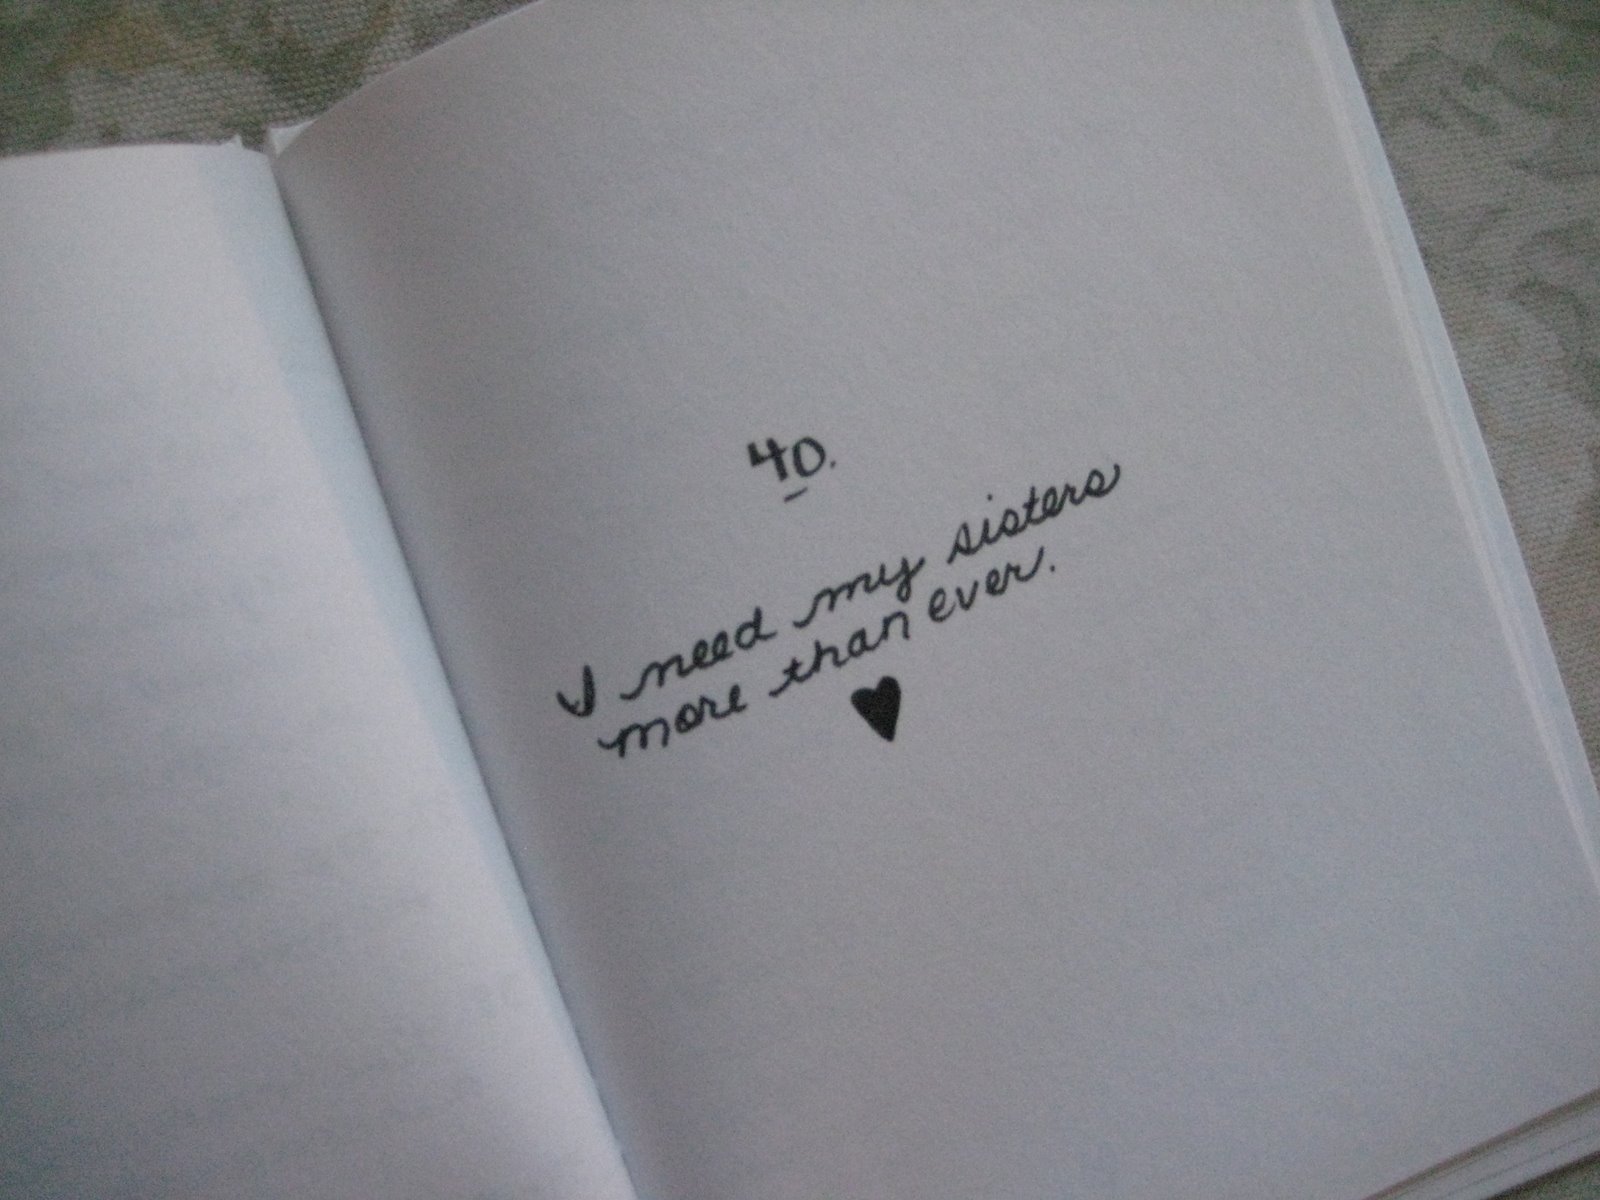 40.
I need my sisters
more than ever.